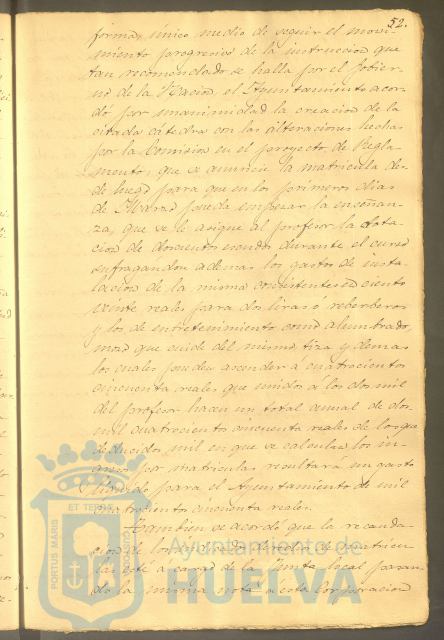 52.
forma, unico medio de seguir el movi-
miento progresivo de la instruccion que
tan recomendado se halla por el Gobier-
no de la Nacion, el Ayuntamiento acor-
dó por unanimidad la creacion de la
citada cátedra con las alteraciones hechas
por la Comision en el proyecto de Regla-
mento; que se anuncie la matricula des-
de luego para que en los primeros dias
de Marzo pueda empezar la enseñan-
za, que se le asigne al profesor la dota-
cion de doscientos escudos durante el curso
sufragandose ademas los gastos de insta-
lacion de la misma consistentes en ciento
veinte reales para dos liras ó reberberos
y los de entretenimiento como alumbrado,
mozo que cuide del mismo tiza y demas
los cuales pueden ascender á cuatrocientos
cincuenta reales que unidos á los dos mil
del profesor hacen un total anual de dos
mil cuatrocientos cincuenta reales de los que
deducidos mil en que se calculan los in-
gresos por matriculas resultará un gasto
liquido para el Ayuntamiento de mil
cuatrocientos cincuenta reales.
Tambien se acordó que la recauda-
cion de los derechos de matricu-
las esté á cargo de la Junta local pasan-
do la misma nota á esta Corporacion
PORTUS MARIS
ET TERRAE
CUSTODIA
Ayuntamiento de
HUELVA